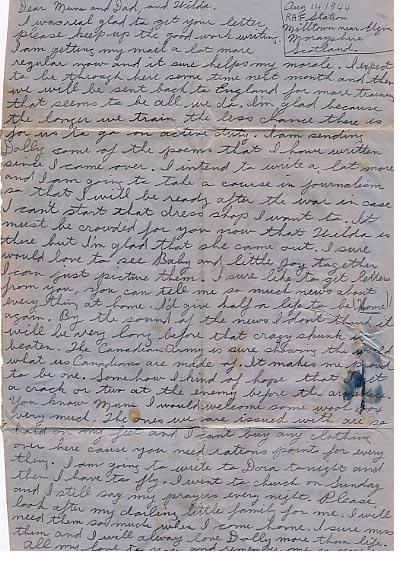 Dear Mum and Dad, and Wilda.
Aug 14 1944
RAF Station
Milltown near Elgin
Morayshire
Scotland.
I was real glad to get your letter
please keep up the good work writing.
I am getting my mail a lot more
regular now and it sure helps my morale. I expect
to be through here some time next month and then
we will be sent back to England for more training
that seems to be all we do. I'm glad because
the longer we train the less chance there is
for us to go on active duty. I am sending
Dolly some of the poems that I have written
since I came over. I intend to write a lot more
and I am going to take a course in journalism
so that I will be ready after the war in case
I can't start that dress shop I want to. It
must be crowded for you now that Wilda is
there but I'm glad that she came out. I sure
would love to see Baby and little Joy together
I can just picture them. I sure like to get letters
from you. You can tell me so much news about
every thing at home. I'd give half a life to be home
again. By the sound of the news I don't think it
will be very long before that crazy skunk is
beaten. The Canadian Army is sure showing the
what us Canadians are made of. It makes me proud
to be one. Somehow I kind of hope that get
a crack or two at the enemy before the
You know Mum I would welcome some wool
very much. The ones we are issued with are so
hard on my feet and I can't buy any clothing
over here cause you need rations points for every
thing. I am going to write to Dora tonight and
then I have to fly. I went to church on Sunday
and I still say my prayers every night. Please
look after my darling little family for me. I will
need them so much when I come home. I sure miss
them and I will always love Dolly more than life.
All my love to you and remember me